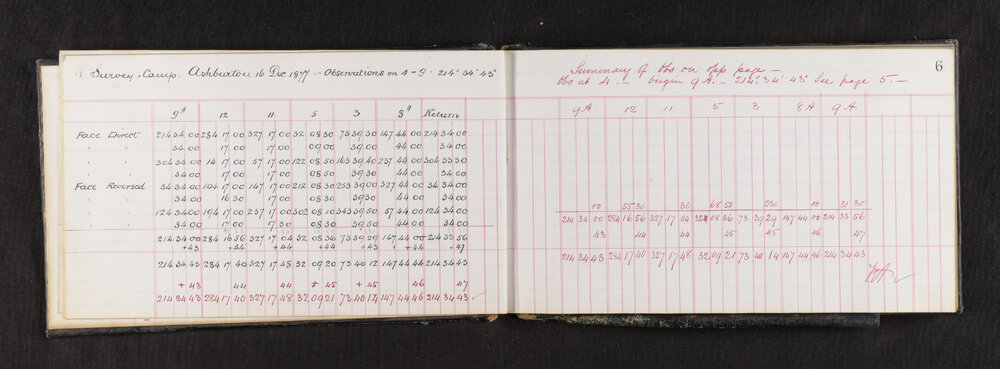 Survey. Camp. Ashburton 16 Dec 1877 - Observations on 4 - 9 - 214° 34' 43"
9A 12 11 5 3 8A Return
Face Direct 214 34 00 284 17 00 327 17 00 32 08 30 73 39 30 147 44 00 214 34 00
" " 34 00 17 00 17 00 09 00 39 00 44 00 34 00
" " 304 34 00 14 17 00 57 17 00 122 08 50 163 39 40 237 44 00 304 33 30
" " 34 00 17 00 17 00 08 50 39 50 44 00 34 00
Face Reversed 34 34 00 104 17 00 147 17 00 212 08 30 253 39 00 327 44 00 34 34 00
" " 34 00 16 30 17 00 08 30 39 30 44 00 34 00
" " 124 34 00 194 17 00 237 17 00 302 08 10 343 39 50 57 44 00 124 34 00
" " 34 00 17 00 17 30 08 30 39 50 44 00 34 00
214 34 00 284 16 56 327 17 04 32 08 36 73 39 29 147 44 00 214 33 56
+43 +44 +44 +45 +45 +46 +47
214 34 43 284 17 40 327 17 48 32 09 20 73 40 12 147 44 44 214 34 43
+43 44 44 + 45 + 45 46 47
214 34 43 284 17 40 327 17 48 32 09 21 73 40 14 147 44 46 214 34 43
6
Summary of Obs on opp page -
Obs at 4. - begin 9A. - 214° 34' 43" See page 5. -
9A 12 11 5 3 8A 9A
00 55 30 30 68 50 00 31 30
214 34 00 284 16 56 327 17 04 32 08 36 73 39 29 147 44 00 214 33 56
43 44 44 45 45 46 47
214 34 43 284 17 40 327 17 48 32 09 21 73 40 14 147 44 46 214 34 43